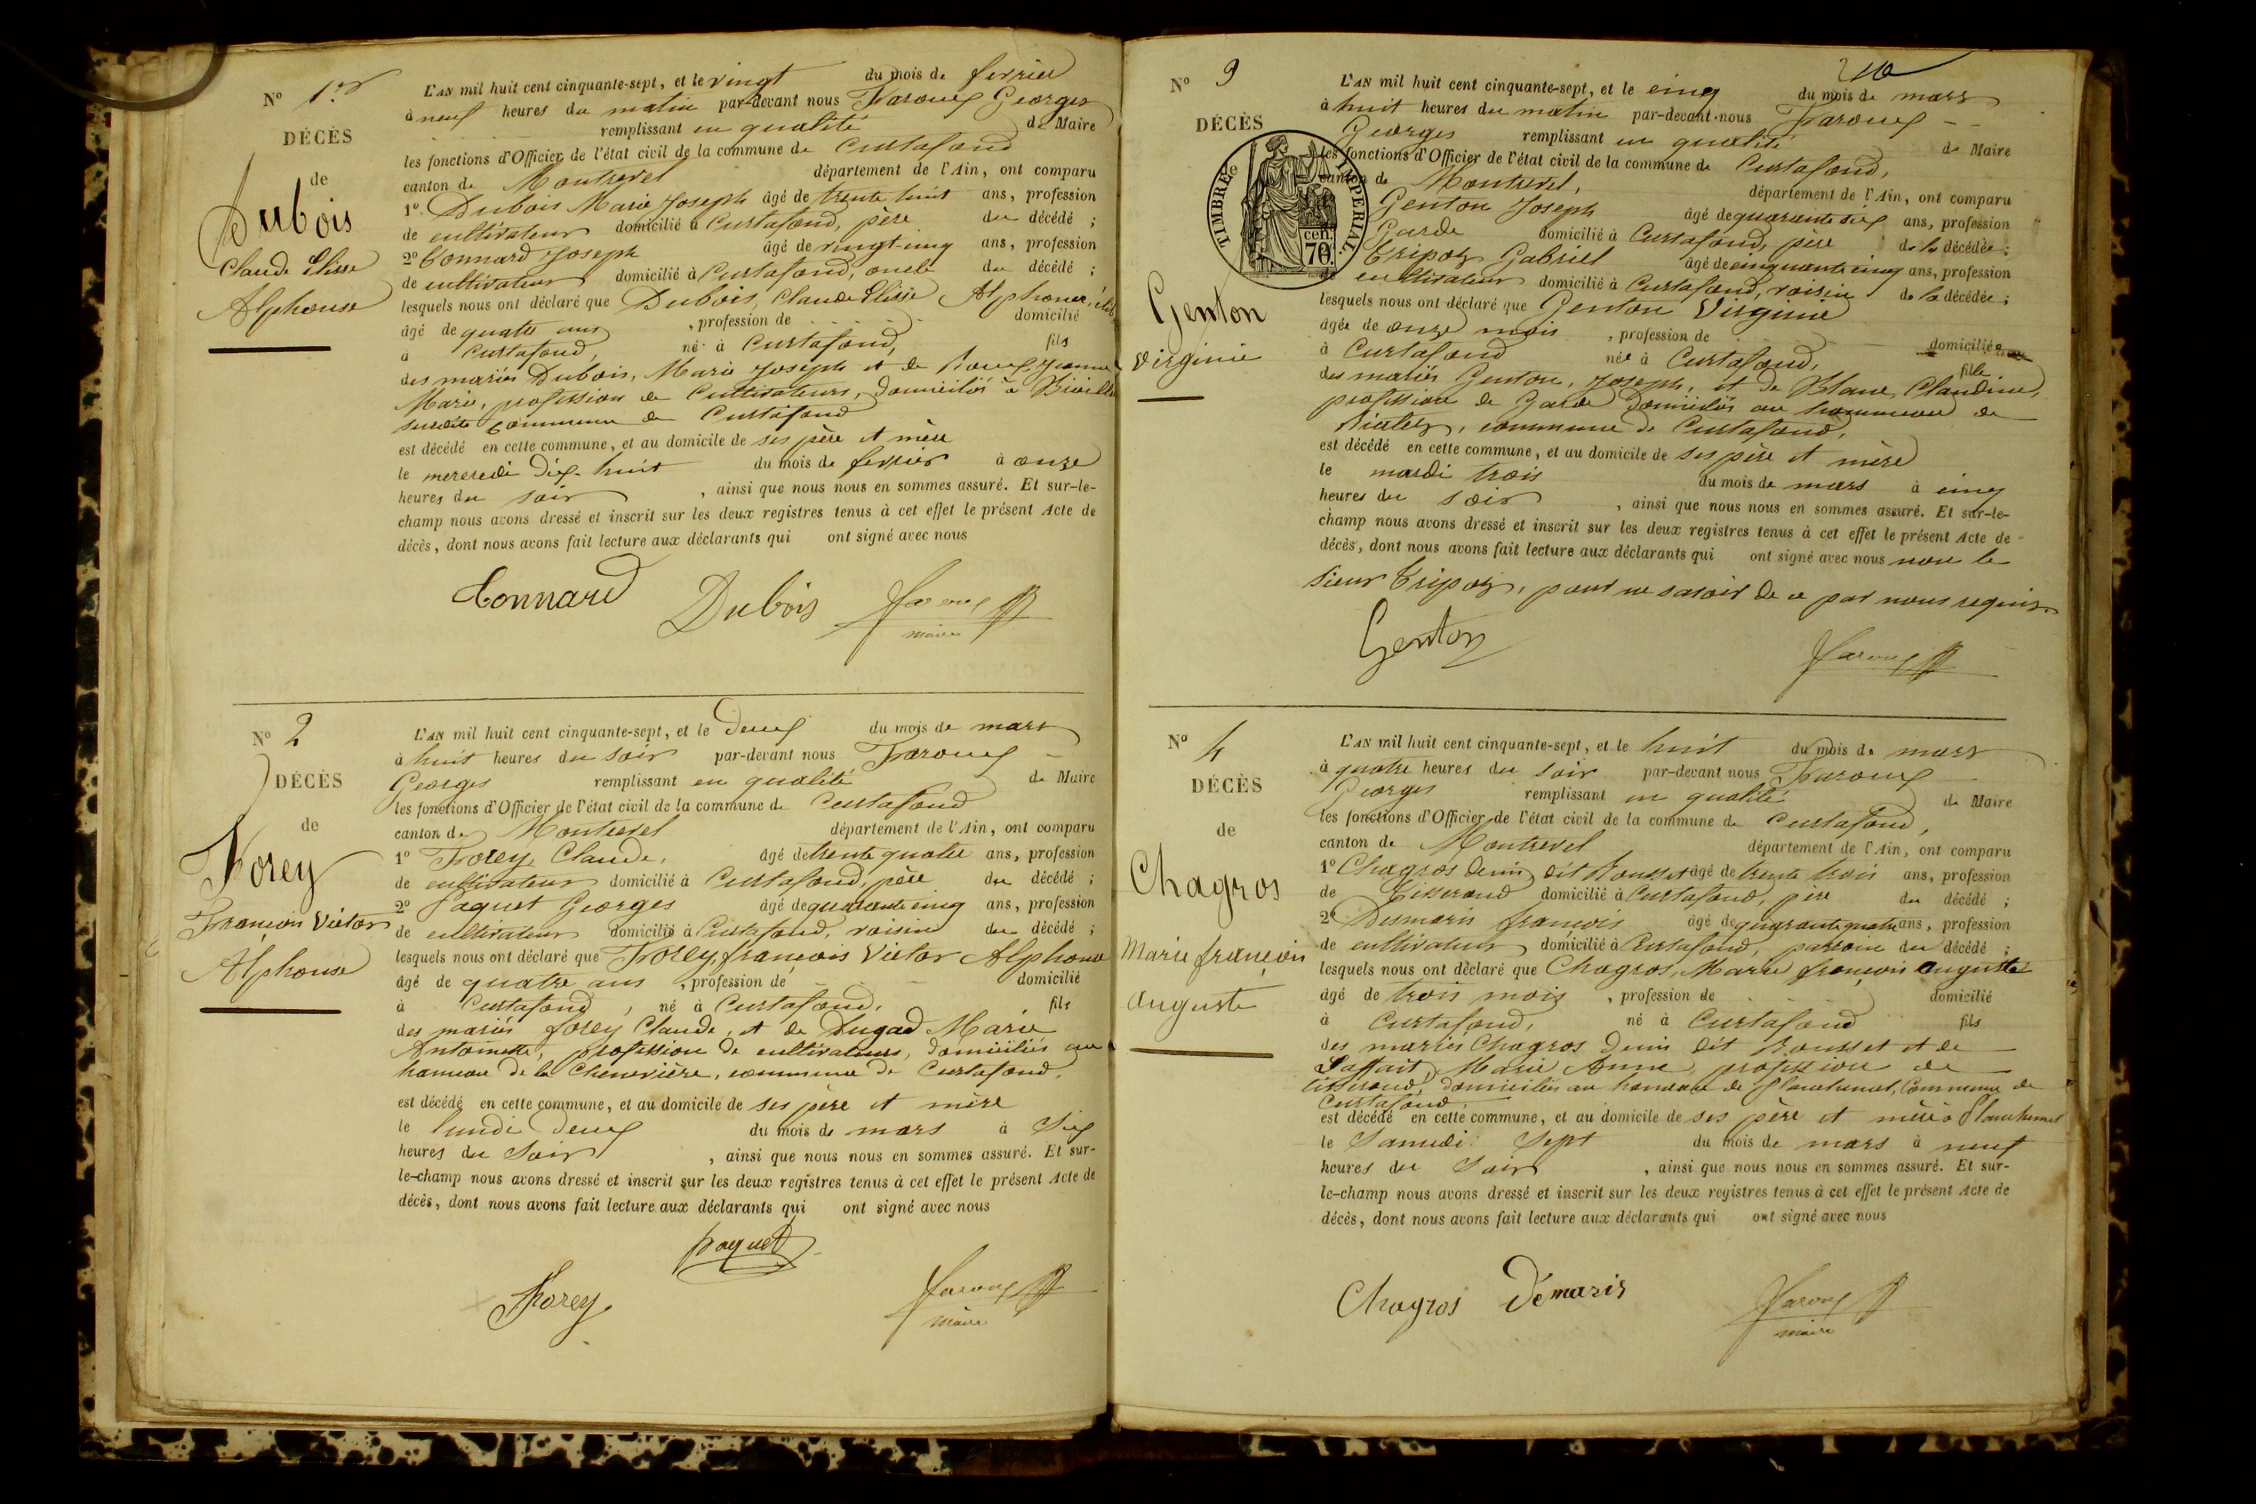 Nº 1er
DÉCÈS
de
Dubois
Claude Elisée
Alphonse
L'AN mil huit cent cinquante-sept, et le vingt du mois de fevrier
à neuf heures du matin par-devant nous Faroux Georges
remplissant en qualité de Maire
les fonctions d'Officier de l'état civil de la commune de Curtafond
canton de Montrevel département de l'Ain, ont comparu
1º Dubois Marie Joseph âgé de trente huit ans, profession
de cultivateur domicilié à Curtafond, père du décédé ;
2º Connard Joseph âgé de vingt-cinq ans, profession
de cultivateur domicilié à Curtafond, oncle du décédé ;
lesquels nous ont déclaré que Dubois, Claude Elisée Alphonse,
âgé de quatre ans , profession de domicilié
à Curtafond, né à Curtafond, fils
des mariés Dubois, Marie Joseph et de Jeanne
Marie, profession de Cultivateurs, domiciliés à
susdite commune de Curtafond
est décédé en cette commune, et au domicile de ses père et mère
le mercredi dix-huit du mois de fevrier à onze
heures du soir , ainsi que nous nous en sommes assuré. Et sur-le-
champ nous avons dressé et inscrit sur les deux registres tenus à cet effet le présent Acte de
décès, dont nous avons fait lecture aux déclarants qui ont signé avec nous
Connard Dubois Faroux
maire
Nº 2
DÉCÈS
de
Forey
François Victor
Alphonse
L'AN mil huit cent cinquante-sept, et le deux du mois de mars
à huit heures du soir par-devant nous Faroux
Georges remplissant en qualité de Maire
les fonctions d'Officier de l'état civil de la commune de Curtafond
canton de Montrevel département de l'Ain, ont comparu
1º Forey, Claude, âgé de trente quatre ans, profession
de cultivateur domicilié à Curtafond, père du décédé ;
2º Paquet Georges âgé de quarante cinq ans, profession
de cultivateur domicilié à Curtafond, voisin du décédé ;
lesquels nous ont déclaré que Forey, françois Victor Alphonse
âgé de quatre ans , profession de domicilié
à Curtafond , né à Curtafond, fils
des mariés forey Claude, et de Dugad Marie
Antoinette, profession de cultivateurs, domiciliés au
hameau de la Chenevière, commune de Curtafond.
est décédé en cette commune, et au domicile de ses père et mère
le lundi deux du mois de mars à six
heures du soir , ainsi que nous nous en sommes assuré. Et sur-
le-champ nous avons dressé et inscrit sur les deux registres tenus à cet effet le présent Acte de
décès, dont nous avons fait lecture aux déclarants qui ont signé avec nous
paquet
Forey Faroux
maire
Nº 3
DÉCÈS
Genton
Virginie
TIMBRE IMPERIAL
cen. 70
L'AN mil huit cent cinquante-sept, et le cinq du mois de mars
à huit heures du matin par-devant nous Faroux
Georges remplissant en qualité de Maire
les fonctions d'Officier de l'état civil de la commune de Curtafond,
canton de Montrevel, département de l'Ain, ont comparu
Genton Joseph âgé de quarante six ans, profession
Garde domicilié à Curtafond, père de la décédée ;
Tripoz Gabriel âgé de cinquante cinq ans, profession
cultivateur domicilié à Curtafond, voisin de la décédée ;
lesquels nous ont déclaré que Genton Virginie
âgée de onze mois , profession de domiciliée
à Curtafond née à Curtafond, fille
des mariés Genton, Joseph, et de Blanc, Claudine,
profession de Garde domiciliés au hammeau de
commune de Curtafond,
est décédé en cette commune, et au domicile de ses père et mère
le mardi trois du mois de mars à cinq
heures du soir , ainsi que nous nous en sommes assuré. Et sur-le-
champ nous avons dressé et inscrit sur les deux registres tenus à cet effet le présent Acte de
décès, dont nous avons fait lecture aux déclarants qui ont signé avec nous non le
sieur Tripoz, pour ne savoir de ce par nous requis.
Genton Faroux
Nº 4
DÉCÈS
de
Chagros
Marie françois
auguste
L'AN mil huit cent cinquante-sept, et le huit du mois de mars
à quatre heures du soir par-devant nous Faroux
Georges remplissant en qualité de Maire
les fonctions d'Officier de l'état civil de la commune de Curtafond,
canton de Montrevel département de l'Ain, ont comparu
1º Chagros denis dit Rousset âgé de trente trois ans, profession
de Tisserand domicilié à Curtafond, père du décédé ;
2º Desmaris françois âgé de quarante quatre ans, profession
de cultivateur domicilié à Curtafond, parrain du décédé ;
lesquels nous ont déclaré que Chagros, Marie françois auguste
âgé de trois mois , profession de domicilié
à Curtafond, né à Curtafond fils
des mariés Chagros Denis dit Rousset et de
Marie Anne, profession de
tisserand, domiciliés au hameau de Planchemel, Commune de
Curtafond.
est décédé en cette commune, et au domicile de ses père et mère à Planchemel
le Samedi Sept du mois de mars à neuf
heures du soir , ainsi que nous nous en sommes assuré. Et sur-
le-champ nous avons dressé et inscrit sur les deux registres tenus à cet effet le présent Acte de
décès, dont nous avons fait lecture aux déclarants qui ont signé avec nous
Chagros Démaris Faroux
maire